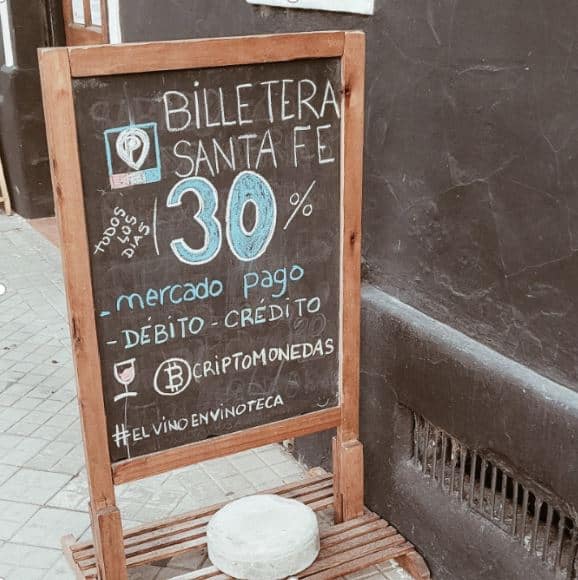 BILLETERA
SANTA FE
TODOS
LOS
DIAS
30%
- mercado pago
- DÉBITO - CRÉDITO
₿ CRIPTOMONEDAS
#ELVINOENVINOTECA